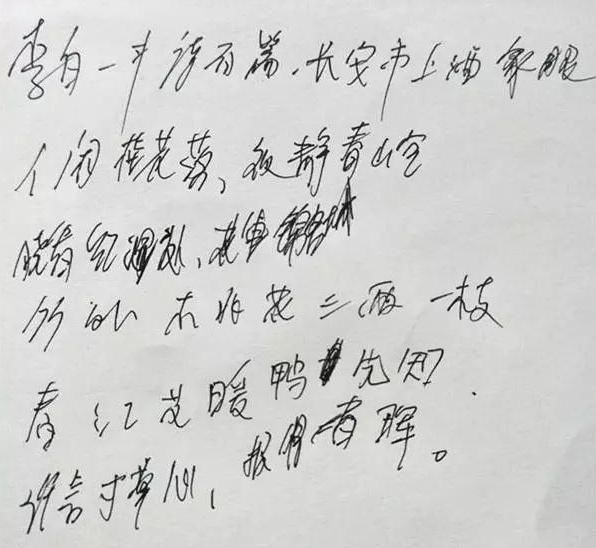 李白一斗诗百篇,长安市上酒家眠
人闲桂花落,夜静春山空
晓看红湿处,花重锦官城
竹外桃花三两枝
春江水暖鸭先知
谁言寸草心,报得春晖。